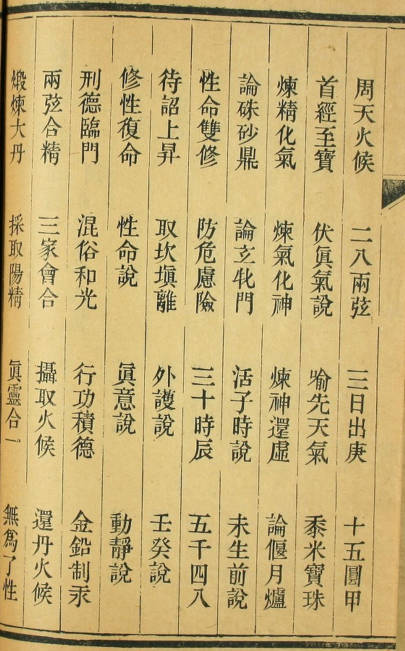 周天火候 二八兩弦 三日出庚 十五圓甲
首經至寶 伏眞氣說 喻先天氣 黍米寶珠
煉精化氣 煉氣化神 煉神還虛 論偃月爐
論硃砂鼎 論玄牝門 活子時說 未生前說
性命雙修 防危慮險 三十時辰 五千四八
待詔上昇 取坎塡離 外護說 壬癸說
修性復命 性命說 眞意說 動靜說
刑德臨門 混俗和光 行功積德 金鉛制汞
兩弦合精 三家會合 攝取火候 還丹火候
煅煉大丹 採取陽精 眞靈合一 無爲了性